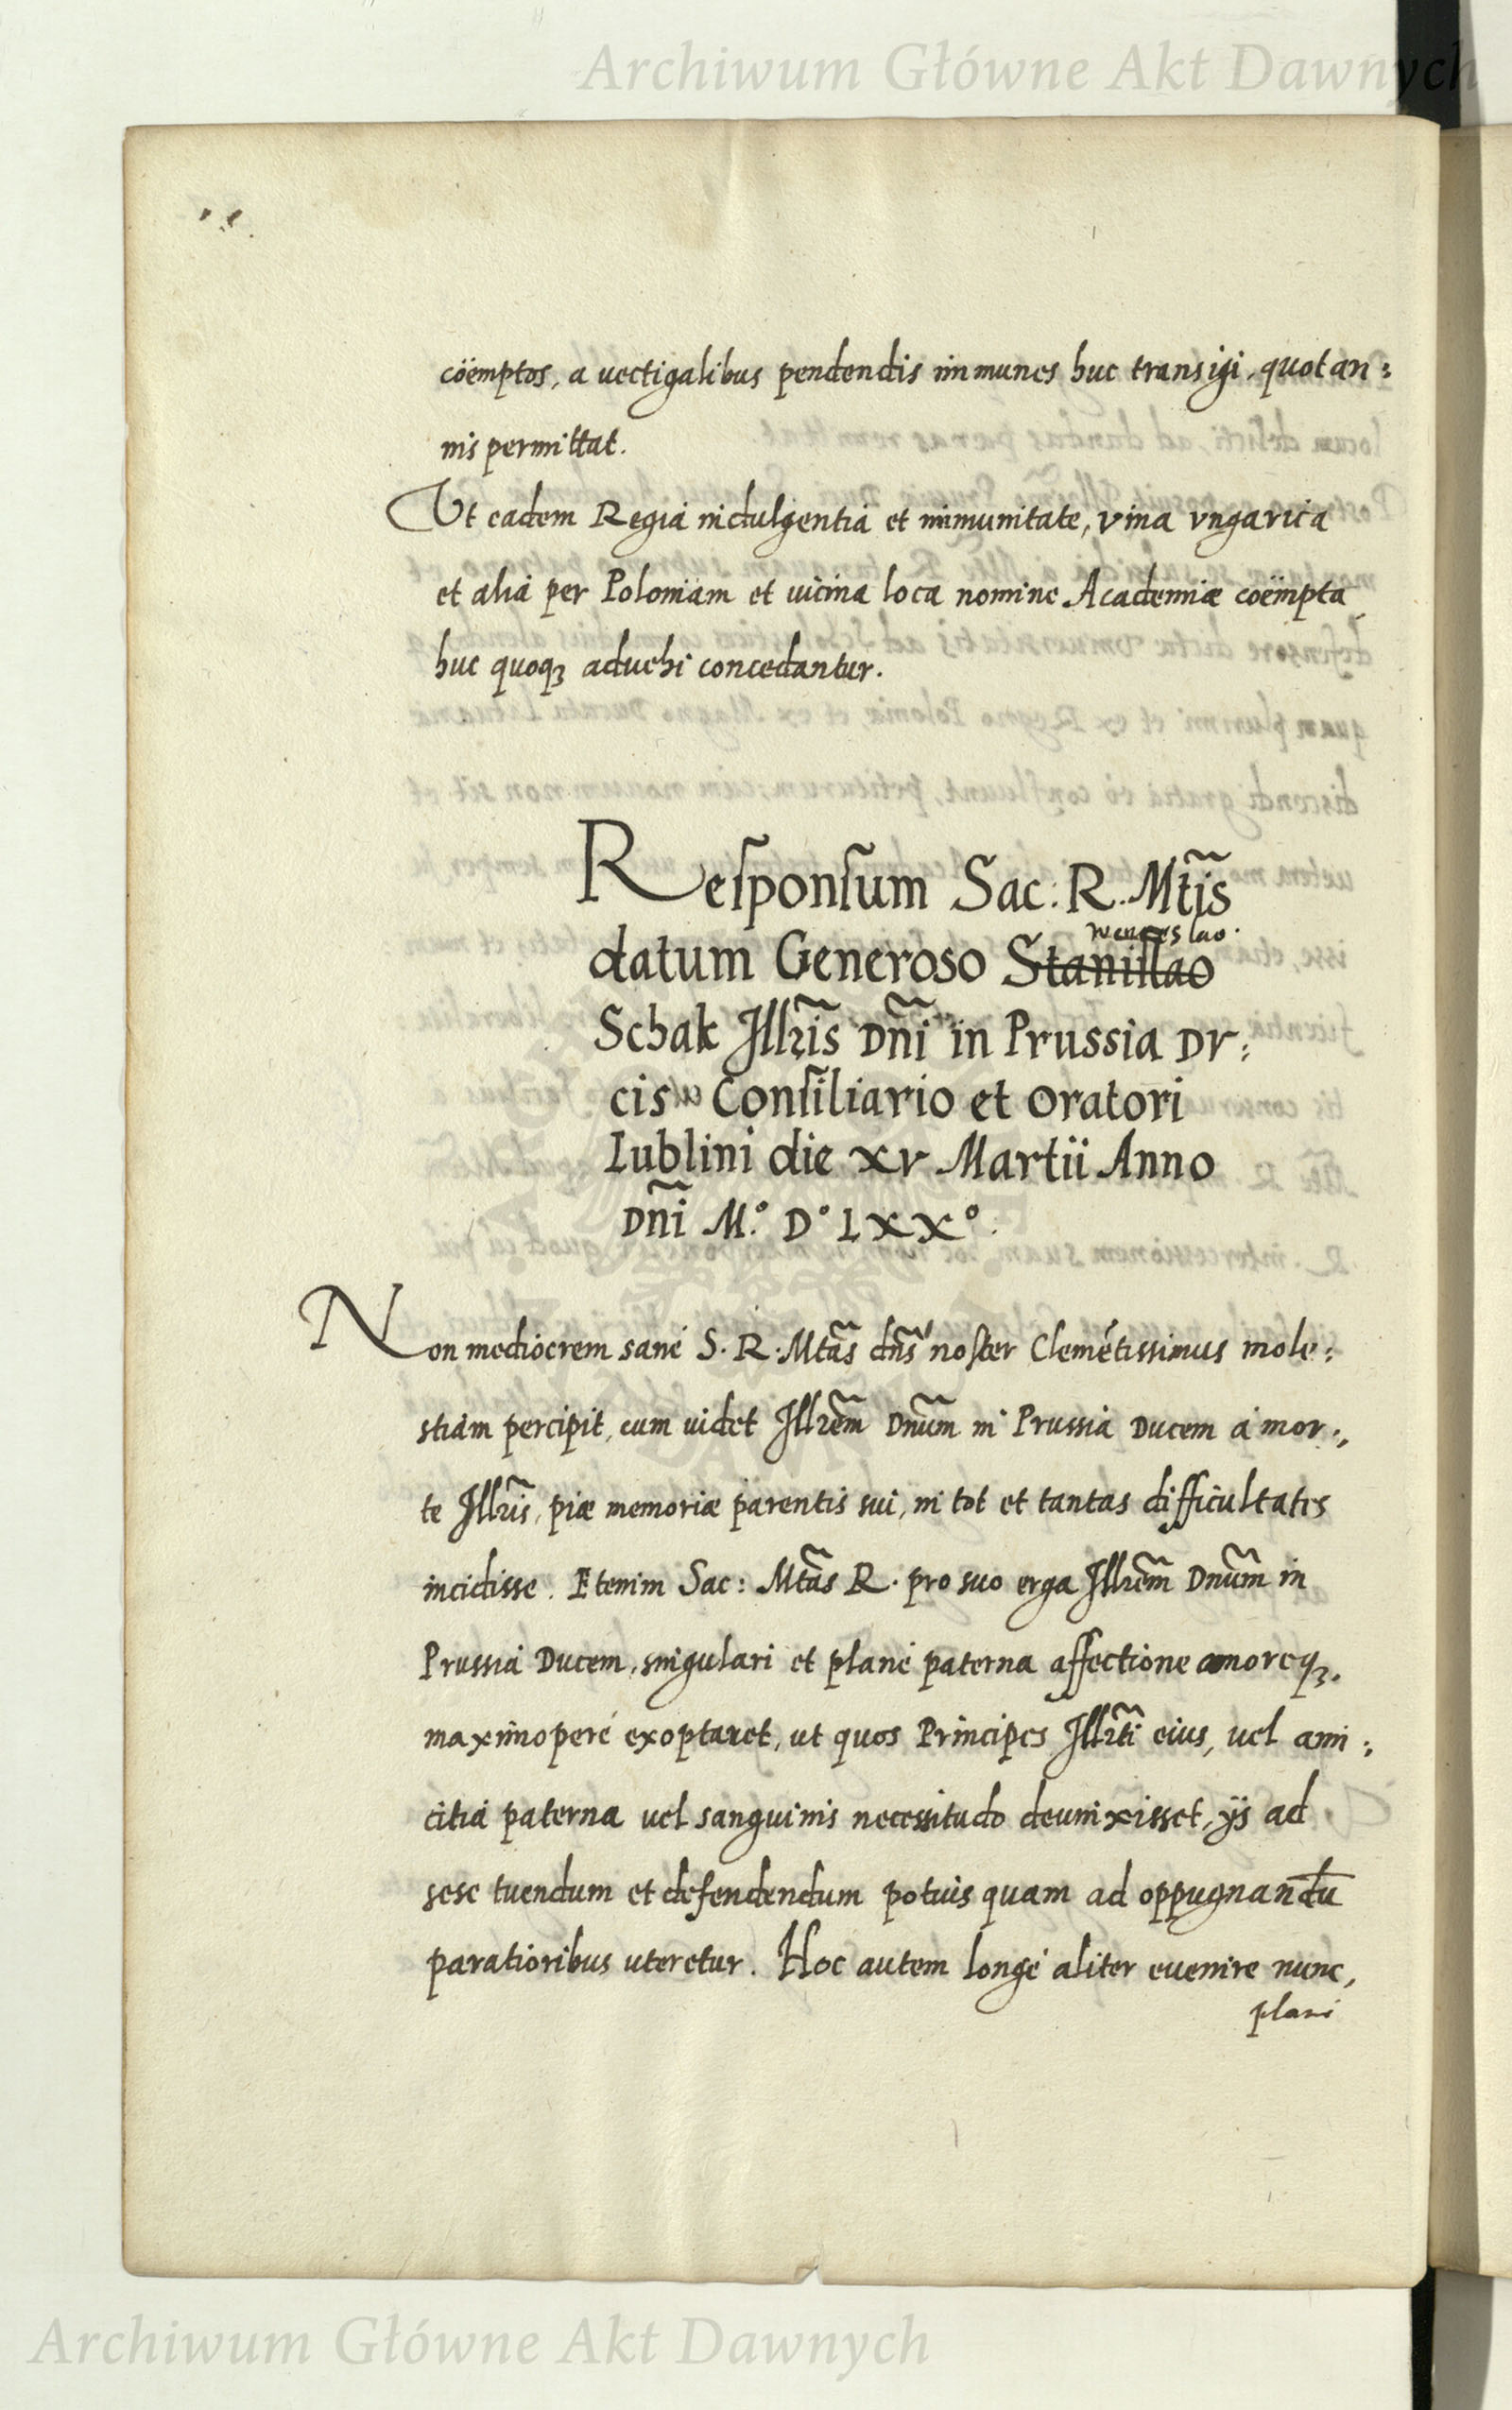 Archiwum Główne Akt Dawnych
cöemptos, a vectigalibus pendendis immunes huc transigi, quotan:
nis permittat.
Vt eadem Regia indulgentia et immunitate, vina vngarica
et alia per Poloniam et uicina loca nomine Academiæ cöempta
huc quoqꝫ aduehi concedantur.
Responsum Sac: R. Mtis
Wenceslao.
datum Generoso Stanislao
Schak Illris Dni in Prussia Dv:
cis Consiliario et Oratori
Lublini die xv Martii Anno
Dni M.° D° LXX°.
Non mediocrem sanè S. R. Mtas dns noster Clemētissimus mole:
stiam percipit, cum uidet Illrem Dnum in Prussia Ducem à mor:,
te Illris, piæ memoriæ parentis sui, in tot et tantas difficultates
incidisse. Etenim Sac: Mtas R. pro suo erga Illrem Dnum in
Prussia Ducem, singulari et planè paterna affectione amoreqꝫ.
maximoperè exoptaret, ut quos Principes Illrti eius, uel ami:
citia paterna uel sanguinis necessitudo deuinxisset, ijs ad
sese tuendum et defendendum potuis quam ad oppugnandū
paratioribus uteretur. Hoc autem longè aliter euenire nunc,
plani
Archiwum Główne Akt Dawnych